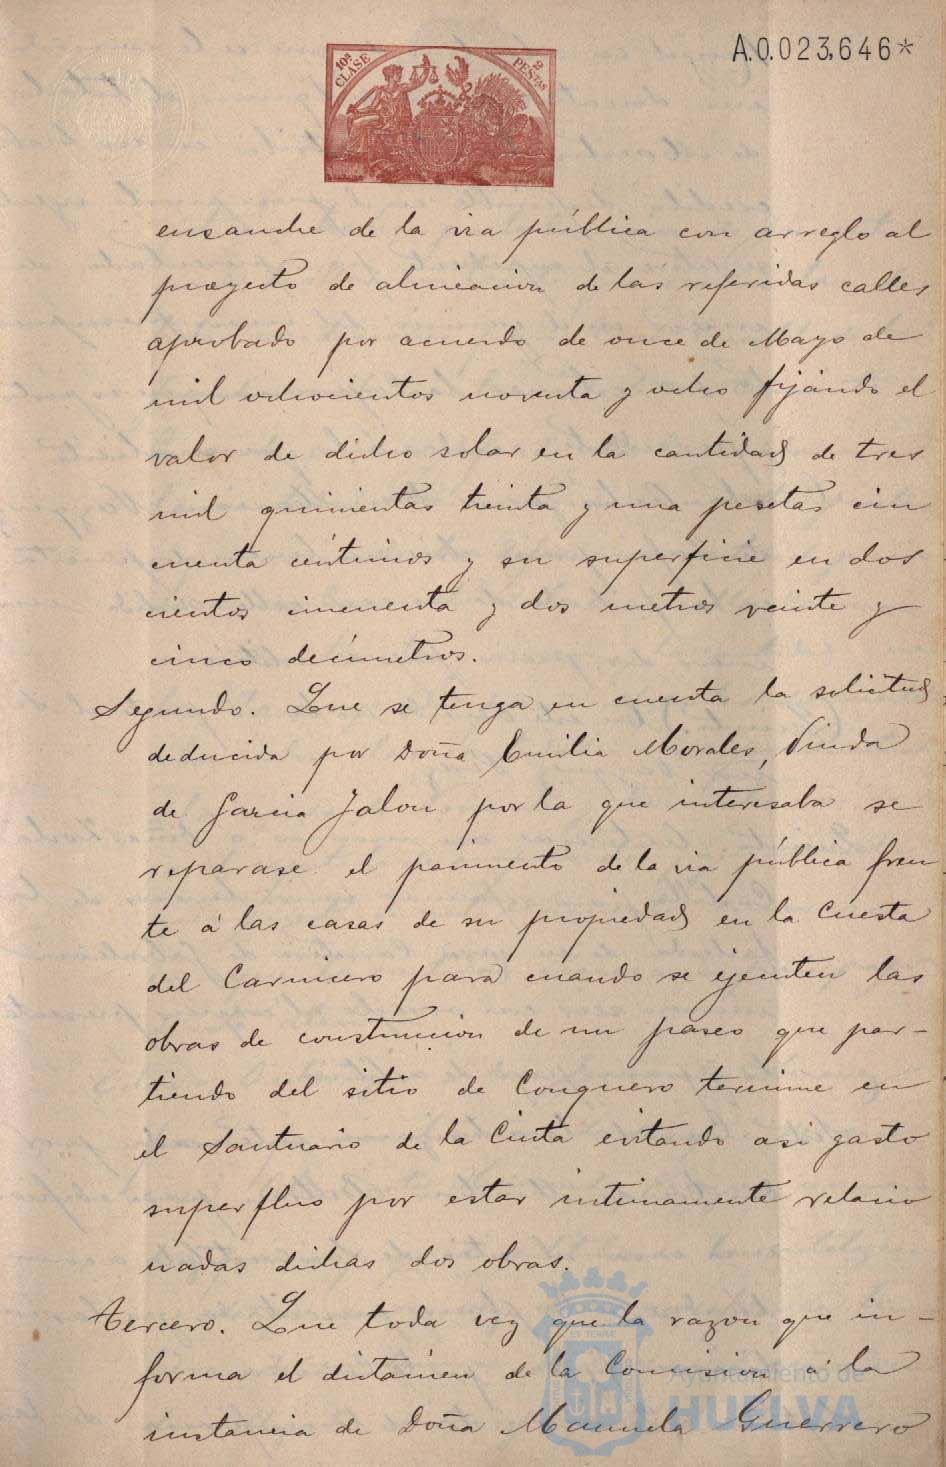 A.0.023,646*
10ª CLASE
2 PESTAS
ensanche de la via pública con arreglo al
proyecto de alineacion de las referidas calles
aprobado por acuerdo de once de Mayo de
mil ochocientos noventa y ocho fijándo el
valor de dicho solar en la cantidad de tres
mil quinientas treinta y una pesetas cin
cuenta céntimos y su superficie en dos
cientos cincuenta y dos metros veinte y
cinco decímetros.
Segundo. Que se tenga en cuenta la solicitud
deducida por Doña Emilia Morales, Viuda
de Garcia Jalon por la que interesaba se
reparase el pavimento de la via pública fren
te á las casas de su propiedad en la Cuesta
del Carnicero para cuando se ejecuten las
obras de construccion de un paseo que par-
tiendo del sitio de Conquero termine en
el Santuario de la Cinta evitando asi gasto
superfluo por estar intimamente relacio
nadas dichas dos obras.
Tercero. Que toda vez que la razon que in-
forma el dictámen de la Comision á la
instancia de Doña Manuela Guerrero
Ayuntamiento de
HUELVA